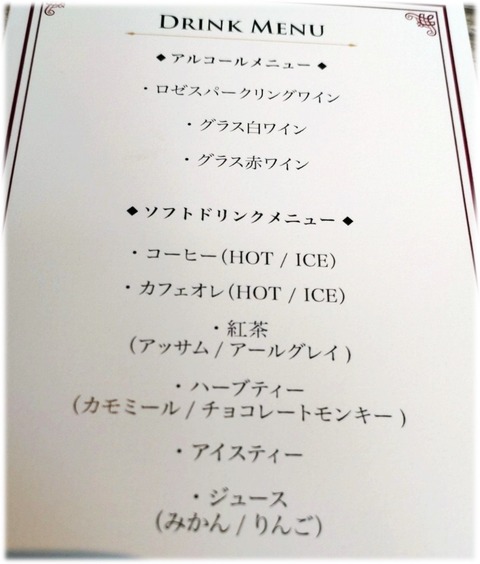 DRINK MENU
◆アルコールメニュー◆
・ロゼスパークリングワイン
・グラス白ワイン
・グラス赤ワイン
◆ソフトドリンクメニュー◆
・コーヒー(HOT / ICE)
・カフェオレ(HOT / ICE)
・紅茶
(アッサム / アールグレイ)
・ハーブティー
(カモミール / チョコレートモンキー)
・アイスティー
・ジュース
(みかん / りんご)